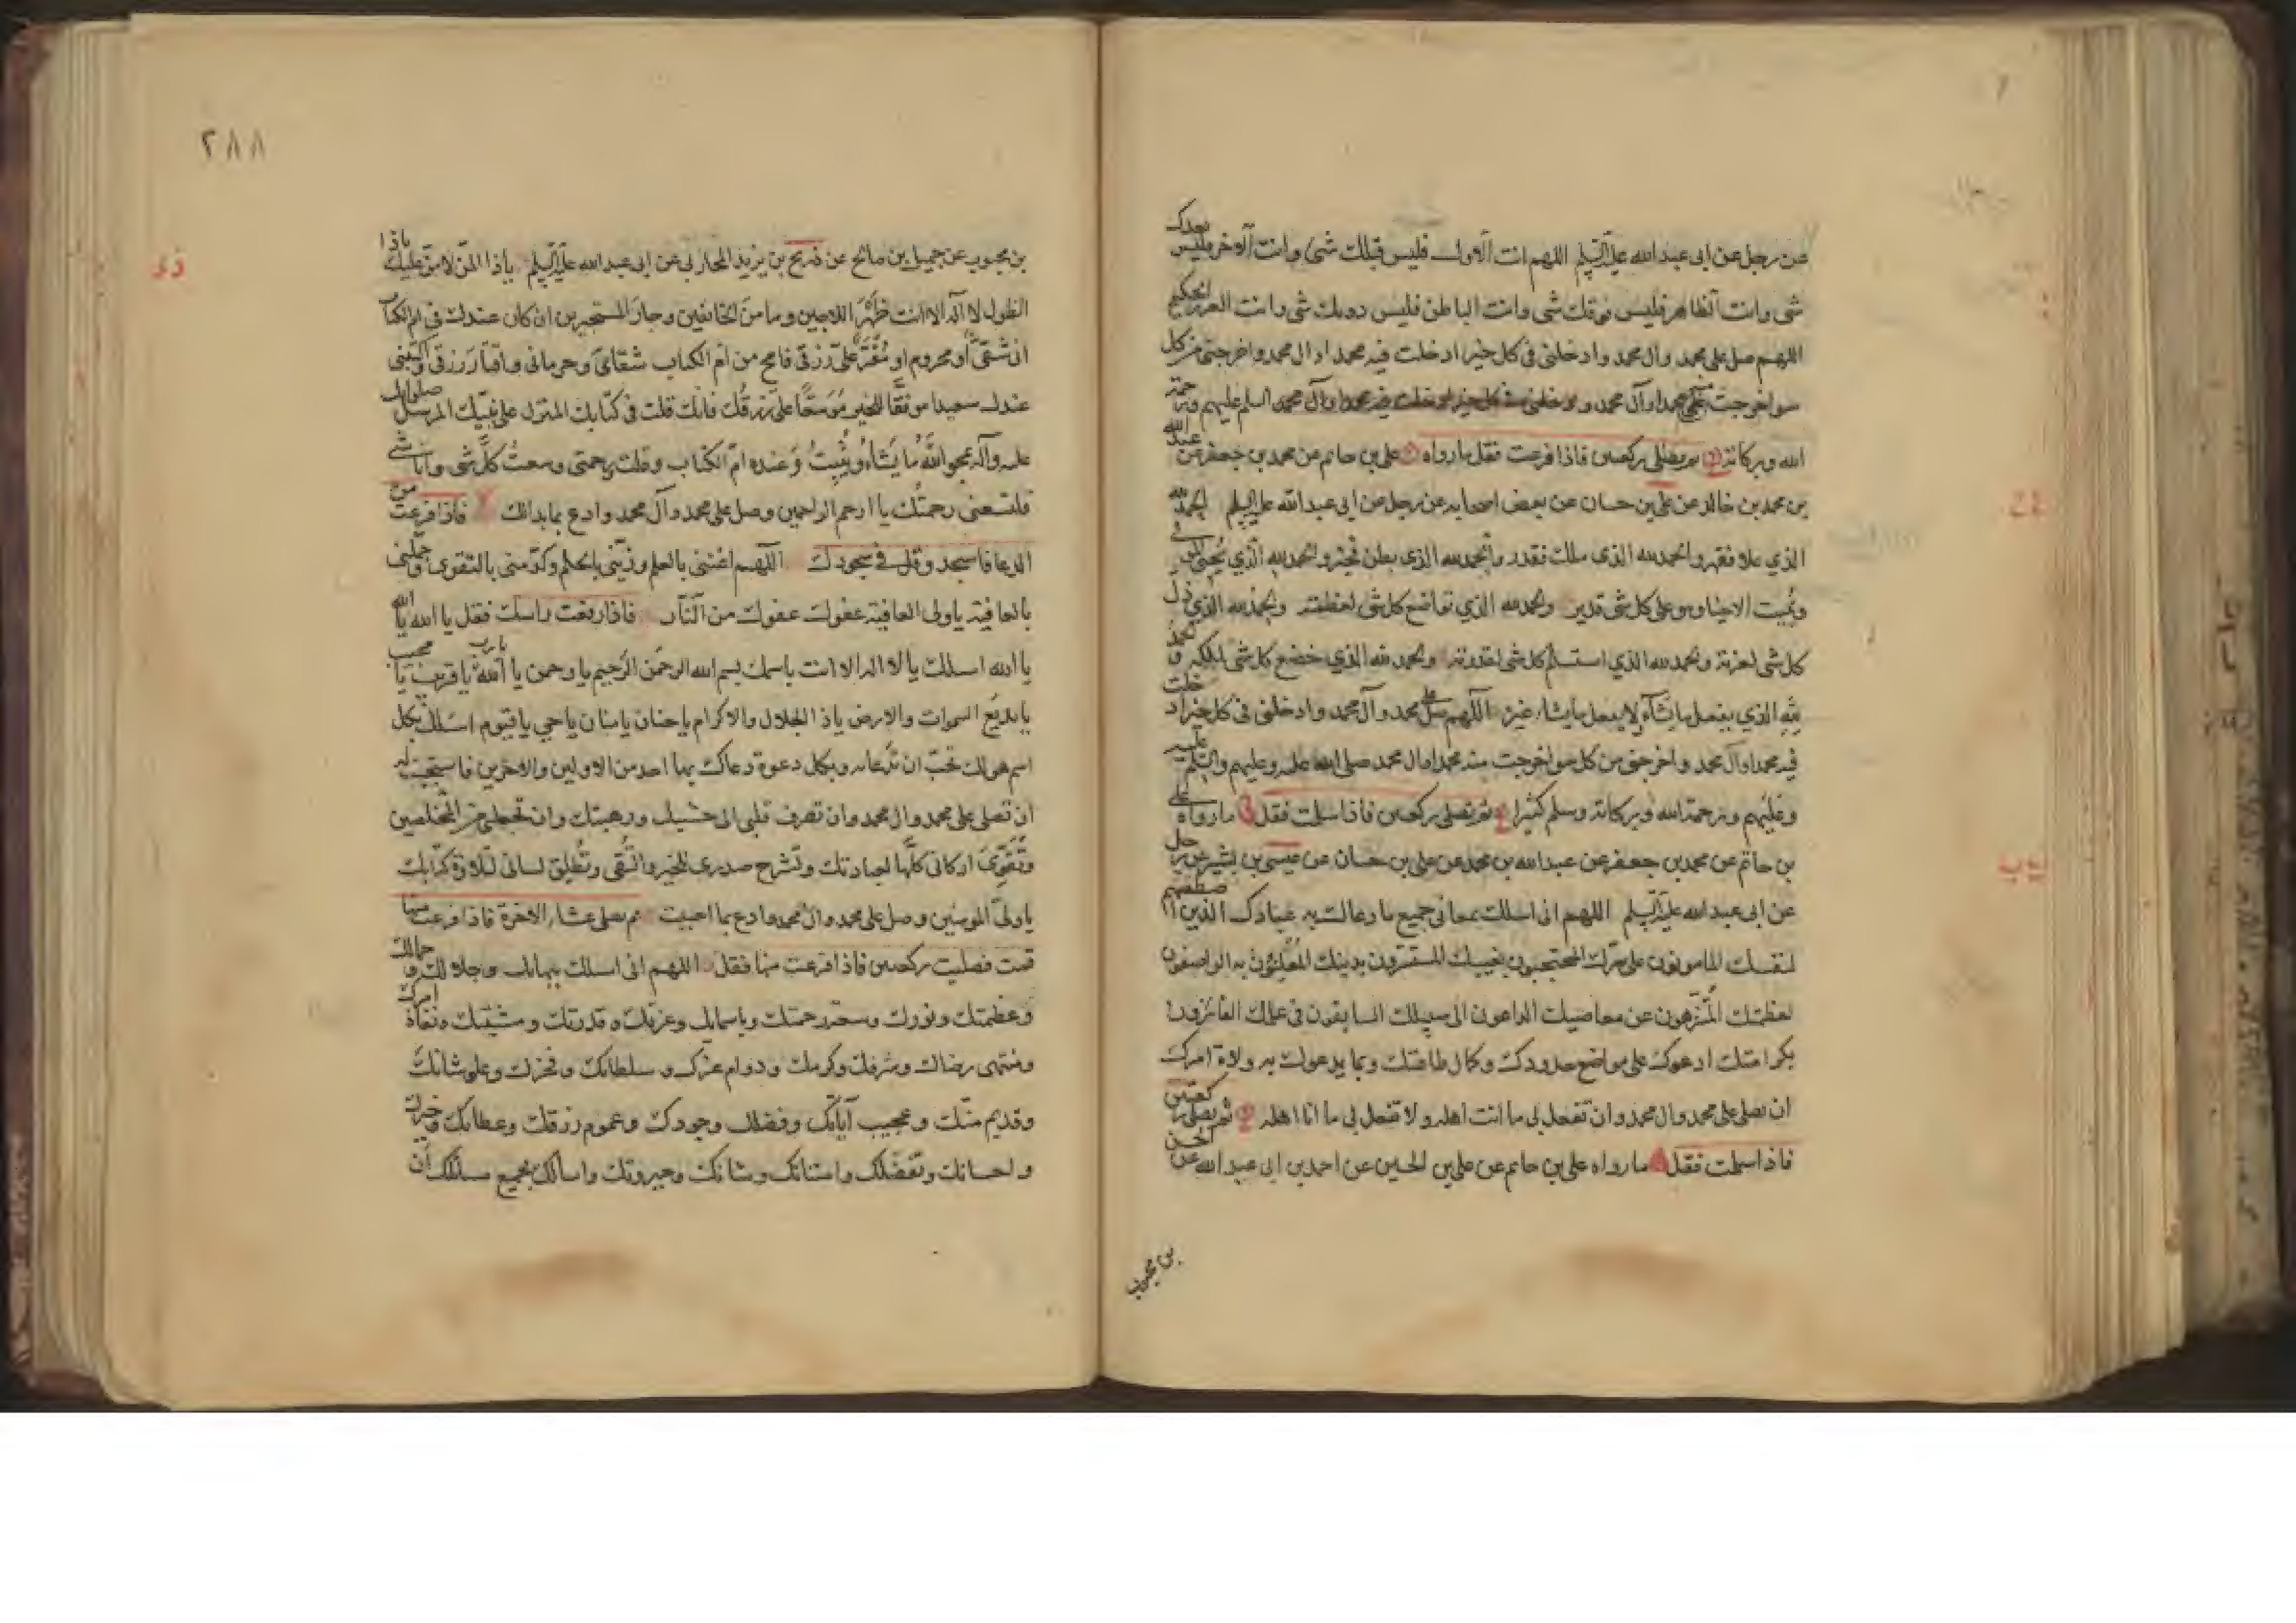 عن رجل عن ابى عبد الله عليه السلم اللهم انت الاول فليس قبلك شئ وانت الآخر فليس بعدك
شى وانت الظاهر فليس فوقك شى وانت الباطن فليس دونك شى وانت العزيز الحكيم
اللهم صل على محمد وال محمد وادخلنى فى كل خير ادخلت فيه محمدا وال محمد واخرجنى من كل
سوء اخرجت منه محمدا وآل محمد والسلم عليهم ورحمة
الله وبركاته ثم تصلى ركعتين فاذا فرغت فقل ما رواه على بن حاتم عن محمد بن جعفر عن عبد الله
بن محمد بن خالد عن على بن حسان عن بعض اصحابه عن رجل عن ابى عبد الله عليه السلم الحمد لله
الذي علا فقهر والحمد لله الذى ملك فقدر والحمد لله الذى بطن فخبر والحمد لله الذي يحيى الموتى
ويميت الاحياء وهو على كل شى قدير والحمد لله الذي تواضع كل شى لعظمته والحمد لله الذي ذل
كل شى لعزته والحمد لله الذي استسلم كل شى لقدرته والحمد لله الذي خضع كل شى لملكه والحمد
لله الذي يفعل ما يشاء ولا يفعل ما يشاء غيره اللهم صل على محمد وآل محمد وادخلنى فى كل خير ادخلت
فيه محمدا وآل محمد واخرجنى من كل سوء اخرجت منه محمدا وال محمد صلى الله عليه وعليهم والسلم عليه
وعليهم ورحمة الله وبركاته وسلم كثيرا ثم تصلى ركعتين فاذا سلمت فقل ما رواه على
بن حاتم عن محمد بن جعفر عن عبد الله بن محمد عن على بن حسان عن عيسى بن بشير عن رجل
عن ابى عبد الله عليه السلم اللهم انى اسلك بمعانى جميع ما دعاك به عبادك الذين اصطفيتهم
لنفسك المامونون على سرك المحتجبون بغيبك المستترون بدينك المعلنون به الواصفون
لعظمتك المنزهون عن معاصيك الداعون الى سبيلك السابقون فى علمك الفائزون
بكرامتك ادعوك على مواضع حدودك وكمال طاعتك وبما يدعوك به ولاة امرك
ان تصلى على محمد وال محمد وان تفعل بى ما انت اهله ولا تفعل بى ما انا اهله ثم تصلى ركعتين
فاذا سلمت فقل ما رواه على بن حاتم عن على بن الحسين عن احمد بن ابى عبد الله عن الحسن
بن محبوب
٢٨٨
بن محبوب عن جميل بن صالح عن ذريح بن يزيد المحاربى عن ابى عبد الله عليه السلم ياذا المن لا من عليك ياذا
الطول لا اله الا انت ظهر اللاجين ومامن الخائفين وجار المستجيرين ان كان عندك فى ام الكتاب
انى شقى او محروم او مقتر على رزقى فامح من ام الكتاب شقائى وحرمانى واقتار رزقى واكتبنى
عندك سعيدا موفقا للخير موسعا على رزقك فانك قلت فى كتابك المنزل على نبيك المرسل صلواتك
عليه وآله يمحو الله ما يشاء ويثبت وعنده ام الكتاب وقلت رحمتى وسعت كل شى وانا شى
فلتسعنى رحمتك يا ارحم الراحمين وصل على محمد وآل محمد وادع بما بدالك فاذا فرغت من
الدعا فاسجد وقل فى سجودك اللهم اغننى بالعلم وزينى بالحلم وكرمنى بالتقوى وجملنى
بالعافية يا ولى العافية عفوك عفوك من النار فاذا رفعت راسك فقل يا الله يا الله
يا الله اسلك يا لا اله الا انت باسمك بسم الله الرحمن الرحيم يا رحمن يا الله يا رب يا قريب يا مجيب
يا بديع السموات والارض ياذا الجلال والاكرام يا حنان يا منان يا حي يا قيوم اسئلك بكل
اسم هو لك تحب ان تدعا به وبكل دعوة دعاك بها احد من الاولين والاخرين فاستجبت له
ان تصلى على محمد وال محمد وان تصرف قلبى الى خشيتك ورهبتك وان تجعلنى من المخلصين
وتقوى اركانى كلها لعبادتك وتشرح صدرى للخير والتقى وتطلق لسانى لتلاوة كتابك
يا ولى المومنين وصل على محمد وال محمد وادع بما احببت ثم تصلى عشاء الاخرة فاذا فرغت منها
قمت فصليت ركعتين فاذا فرغت منها فقل اللهم انى اسلك ببهائك وجلالك وجمالك
وعظمتك ونورك وسعة رحمتك وباسمائك وعزتك وقدرتك ومشيتك ونفاذ امرك
ومنتهى رضاك وشرفك وكرمك ودوام عزك وسلطانك وفخرك وعلو شانك
وقديم منك وعجيب آياتك وفضلك وجودك وعموم رزقك وعطائك وخيرك
واحسانك وتفضلك وامتنانك وشانك وجبروتك واسالك بجميع مسائلك ان